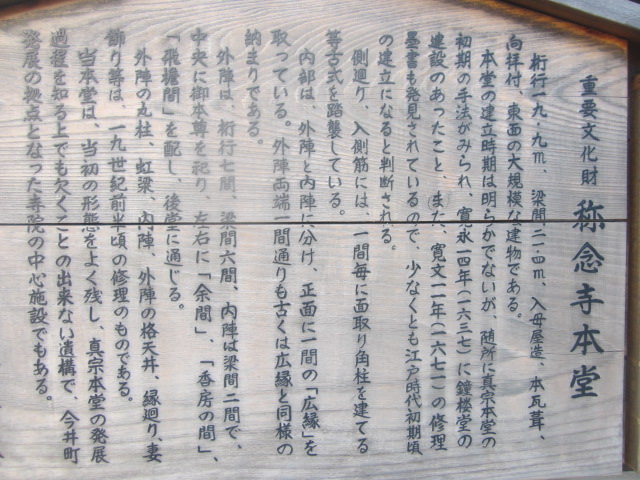 重要文化財 称念寺本堂
桁行一九・九m、梁間二一・四m、入母屋造、本瓦葺、
向拝付、東面の大規模な建物である。
本堂の建立時期は明らかでないが、随所に真宗本堂の
初期の手法がみられ、寛永一四年(一六三七)に鐘楼堂の
建設のあったこと、また、寛文一一年(一六七一)の修理
墨書も発見されているので、少なくとも江戸時代初期頃
の建立になると判断される。
側廻り、入側筋には、一間毎に面取り角柱を建てる
等古式を踏襲している。
内部は、外陣と内陣に分け、正面に一間の「広縁」を
取っている。外陣両端一間通りも古くは広縁と同様の
納まりである。
外陣は、桁行七間、梁間六間、内陣は梁間二間で、
中央に御本尊を祀り、左右に「余間」、「香房の間」、
「飛檐間」を配し、後堂に通じる。
外陣の丸柱、虹梁、内陣、外陣の格天井、縁廻り、妻
飾り等は、一九世紀前半頃の修理のものである。
当本堂は、当初の形態をよく残し、真宗本堂の発展
過程を知る上でも欠くことの出来ない遺構で、今井町
発展の拠点となった寺院の中心施設でもある。